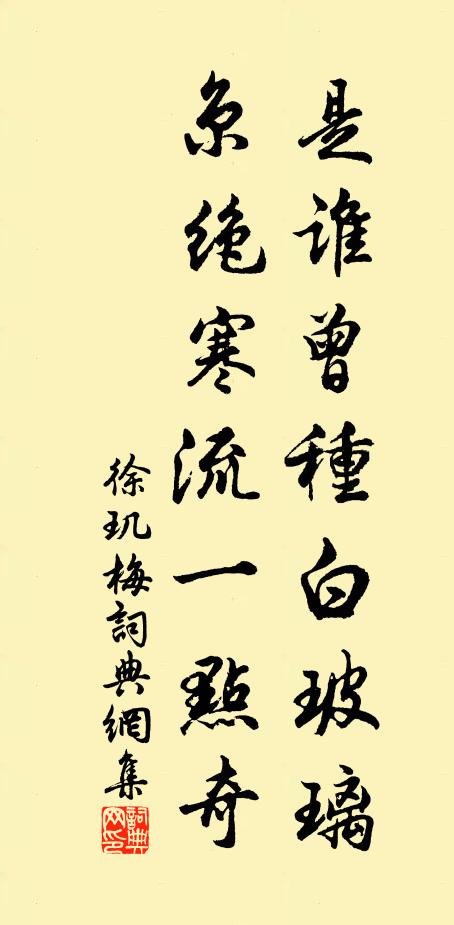 是誰曾種白玻璃
京絶寒流一點奇
徐玑梅詞典網集
詞典网印